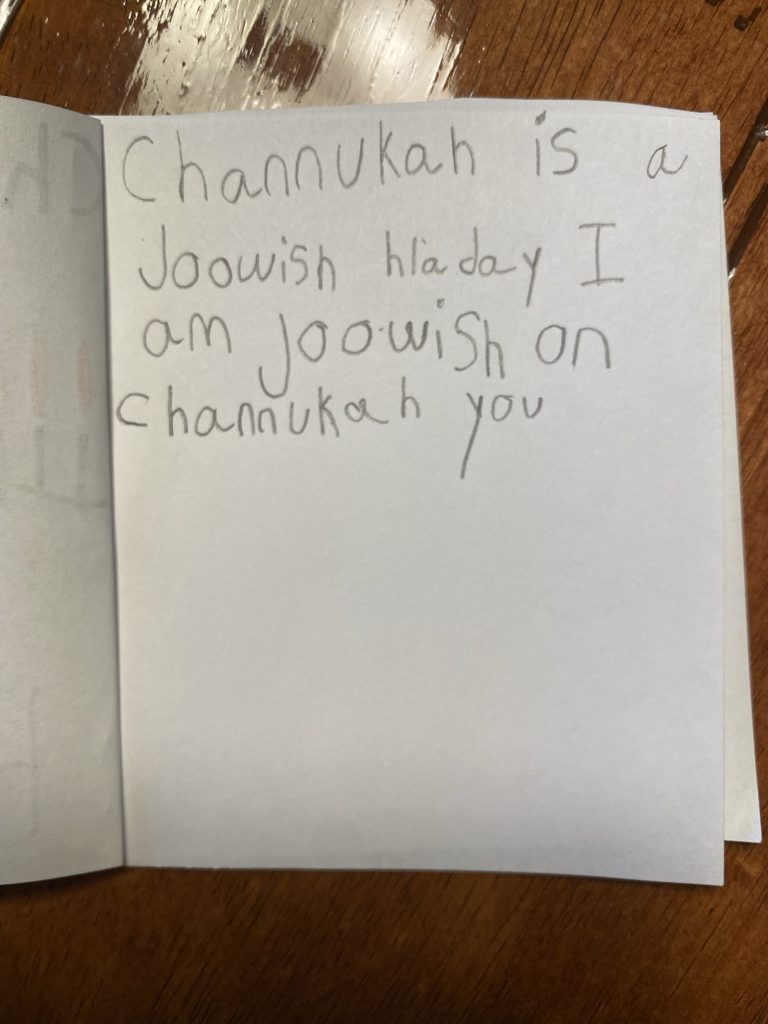 Channukah is a
Joowish hliaday I
am joowish on
channukah you